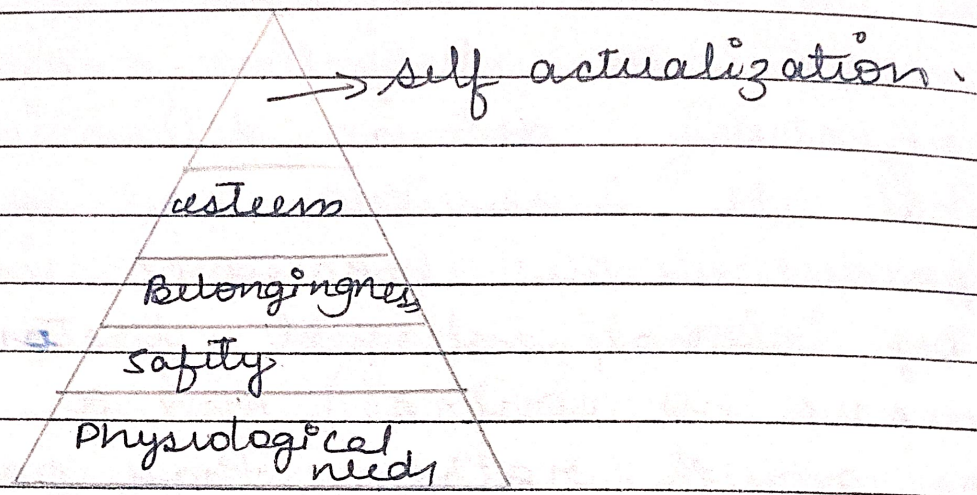 self actualization.
esteem
Belongingness
safity
Physiological
needs